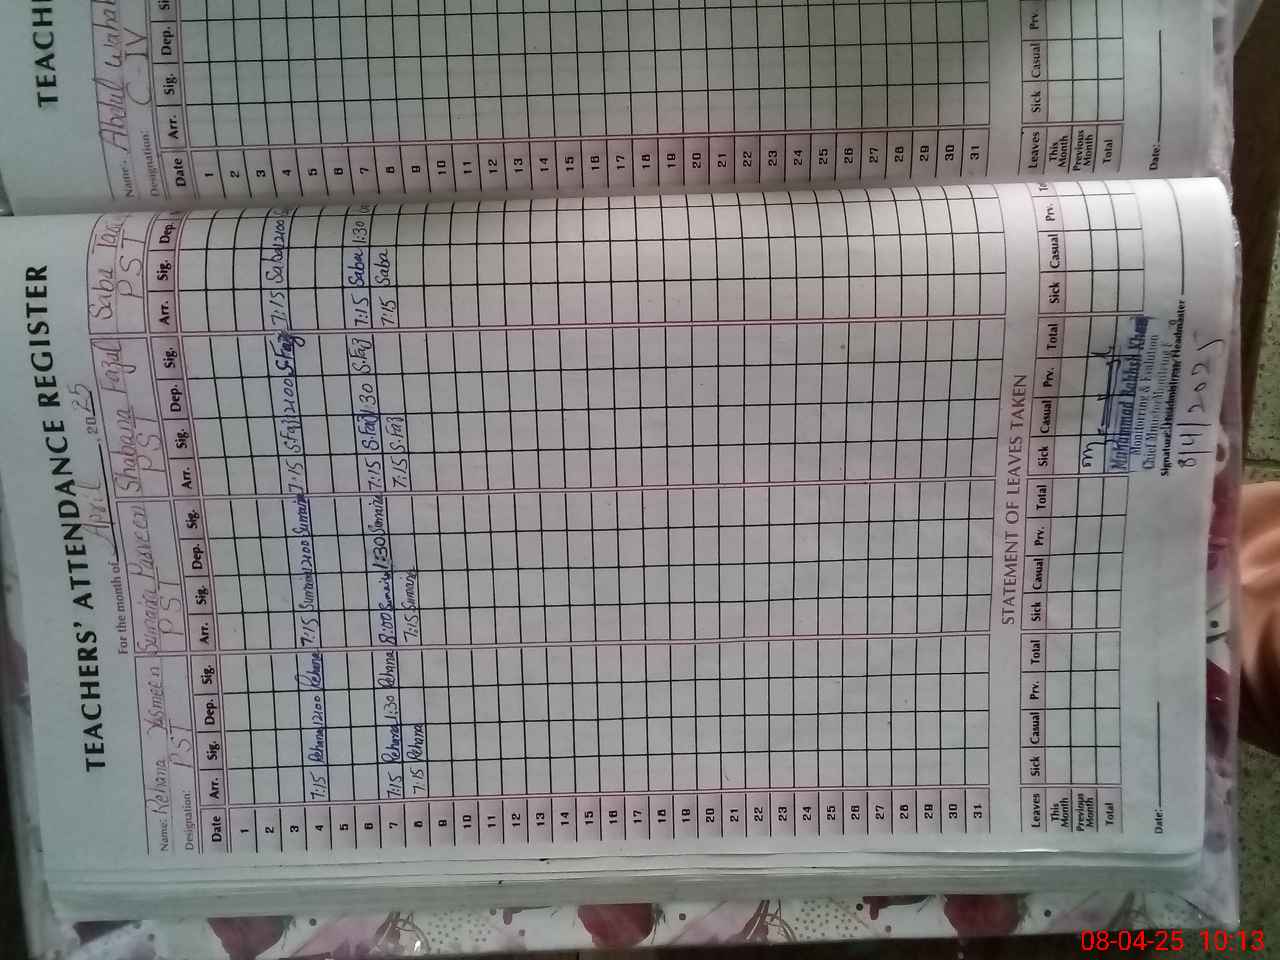 TEACHERS' ATTENDANCE REGISTER
For the month of April, 2025
Name: Rehana Yasmeen Sumaira Parveen Shabana Fazal Saba
Designation: PST PST PST PST
Date Arr. Sig. Dep. Sig. Arr. Sig. Dep. Sig. Arr. Sig. Dep. Sig. Arr. Sig. Dep.
1
2
3
4 7:15 Rehana 12:00 Rehana 7:15 Sumaira 12:00 Sumaira 7:15 S.Faz 12:00 S.Faz 7:15 Saba 12:00
5
6
7 7:15 Rehana 1:30 Rehana 8:00 Sumaira 1:30 Sumaira 7:15 S.Faz 1:30 S.Faz 7:15 Saba 1:30
8 7:15 Rehana 7:15 Sumaira 7:15 S.Faz 7:15 Saba
9
10
11
12
13
14
15
16
17
18
19
20
21
22
23
24
25
26
27
28
29
30
31
STATEMENT OF LEAVES TAKEN
Leaves Sick Casual Prv. Total Sick Casual Prv. Total Sick Casual Prv. Total Sick Casual Prv.
This Month
Previous Month
Total
Muhammad Bakhsh Khan
Monitoring & Evaluation
Chief Minister Monitoring F
Date: Signature: Headmistress/Headmaster
8/4/2025
TEACHE
Name: Abdul Wahab
Designation: C-IV
Date Arr. Sig. Dep.
1
2
3
4
5
6
7
8
9
10
11
12
13
14
15
16
17
18
19
20
21
22
23
24
25
26
27
28
29
30
31
Leaves Sick Casual Prv.
This Month
Previous Month
Total
Date:
08-04-25 10:13